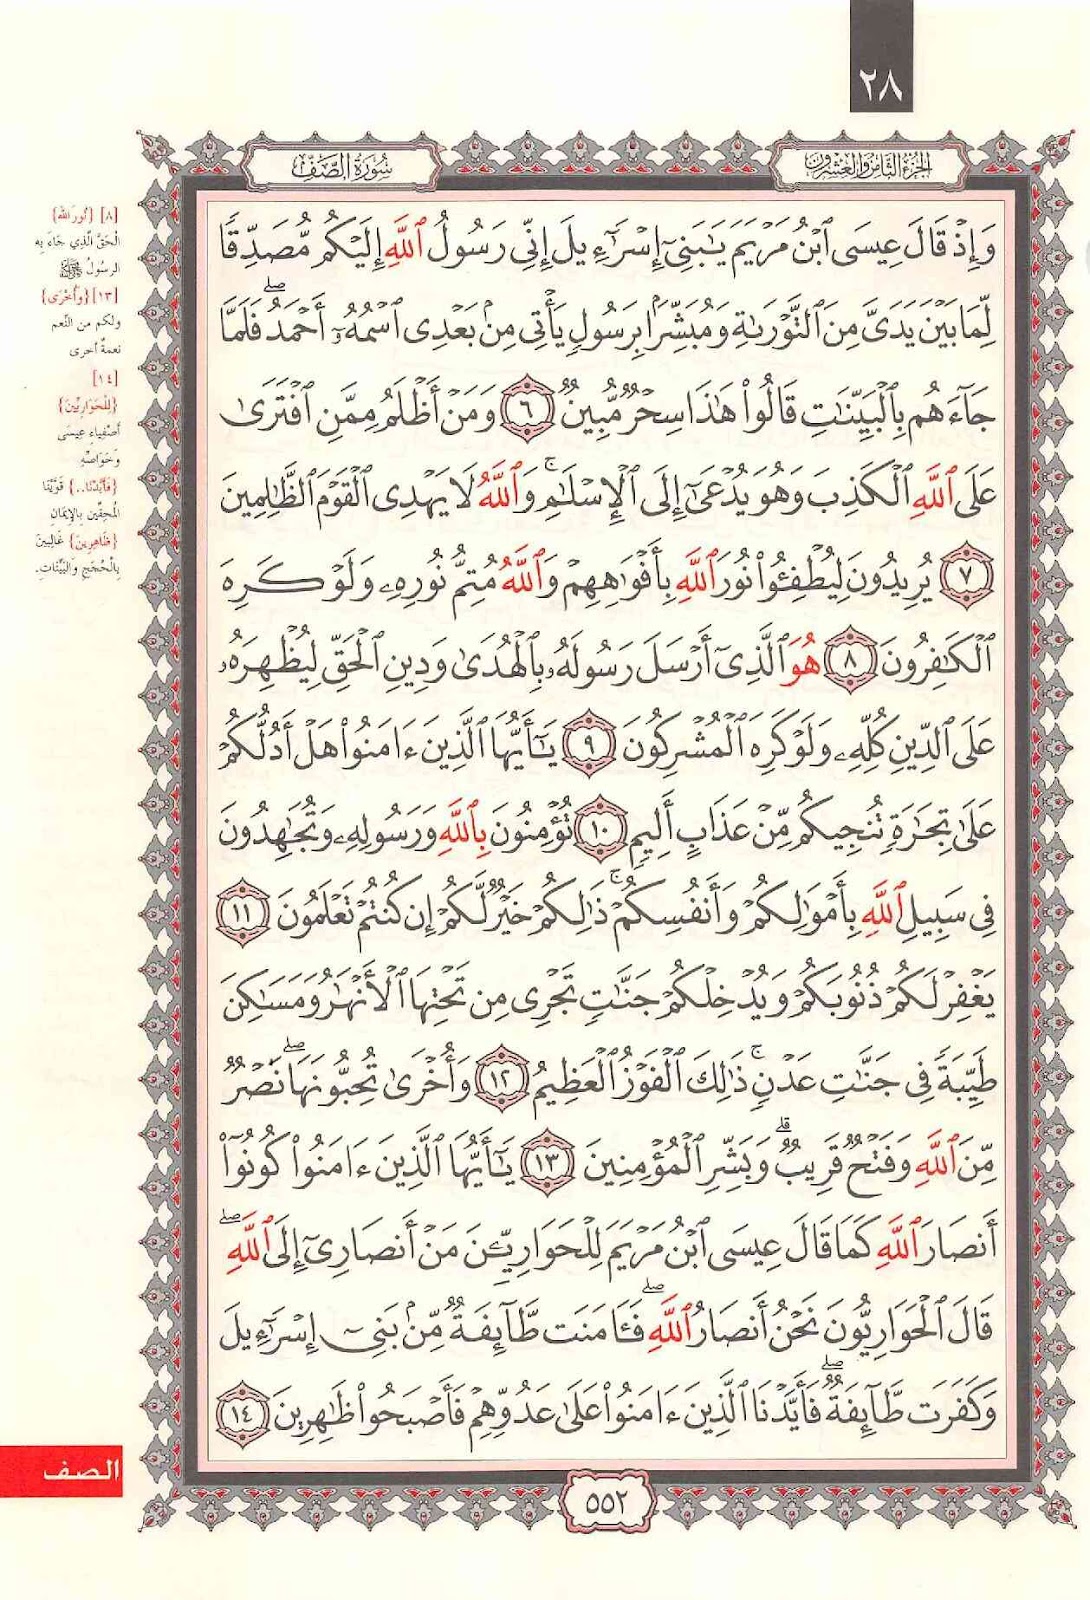 ٢٨
الجزء الثامن والعشرون
سورة الصف
وَإِذْ قَالَ عِيسَى ٱبْنُ مَرْيَمَ يَٰبَنِىٓ إِسْرَٰٓءِيلَ إِنِّى رَسُولُ ٱللَّهِ إِلَيْكُم مُّصَدِّقًا
لِّمَا بَيْنَ يَدَىَّ مِنَ ٱلتَّوْرَىٰةِ وَمُبَشِّرًۢا بِرَسُولٍ يَأْتِى مِنۢ بَعْدِى ٱسْمُهُۥٓ أَحْمَدُ ۖ فَلَمَّا
جَآءَهُم بِٱلْبَيِّنَٰتِ قَالُوا۟ هَٰذَا سِحْرٌ مُّبِينٌ ٦ وَمَنْ أَظْلَمُ مِمَّنِ ٱفْتَرَىٰ
عَلَى ٱللَّهِ ٱلْكَذِبَ وَهُوَ يُدْعَىٰٓ إِلَى ٱلْإِسْلَٰمِ ۚ وَٱللَّهُ لَا يَهْدِى ٱلْقَوْمَ ٱلظَّٰلِمِينَ
٧ يُرِيدُونَ لِيُطْفِـُٔوا۟ نُورَ ٱللَّهِ بِأَفْوَٰهِهِمْ وَٱللَّهُ مُتِمُّ نُورِهِۦ وَلَوْ كَرِهَ
ٱلْكَٰفِرُونَ ٨ هُوَ ٱلَّذِىٓ أَرْسَلَ رَسُولَهُۥ بِٱلْهُدَىٰ وَدِينِ ٱلْحَقِّ لِيُظْهِرَهُۥ
عَلَى ٱلدِّينِ كُلِّهِۦ وَلَوْ كَرِهَ ٱلْمُشْرِكُونَ ٩ يَٰٓأَيُّهَا ٱلَّذِينَ ءَامَنُوا۟ هَلْ أَدُلُّكُمْ
عَلَىٰ تِجَٰرَةٍ تُنجِيكُم مِّنْ عَذَابٍ أَلِيمٍ ١٠ تُؤْمِنُونَ بِٱللَّهِ وَرَسُولِهِۦ وَتُجَٰهِدُونَ
فِى سَبِيلِ ٱللَّهِ بِأَمْوَٰلِكُمْ وَأَنفُسِكُمْ ۚ ذَٰلِكُمْ خَيْرٌ لَّكُمْ إِن كُنتُمْ تَعْلَمُونَ ١١
يَغْفِرْ لَكُمْ ذُنُوبَكُمْ وَيُدْخِلْكُمْ جَنَّٰتٍ تَجْرِى مِن تَحْتِهَا ٱلْأَنْهَٰرُ وَمَسَٰكِنَ
طَيِّبَةً فِى جَنَّٰتِ عَدْنٍ ۚ ذَٰلِكَ ٱلْفَوْزُ ٱلْعَظِيمُ ١٢ وَأُخْرَىٰ تُحِبُّونَهَا ۖ نَصْرٌ
مِّنَ ٱللَّهِ وَفَتْحٌ قَرِيبٌ ۗ وَبَشِّرِ ٱلْمُؤْمِنِينَ ١٣ يَٰٓأَيُّهَا ٱلَّذِينَ ءَامَنُوا۟ كُونُوٓا۟
أَنصَارَ ٱللَّهِ كَمَا قَالَ عِيسَى ٱبْنُ مَرْيَمَ لِلْحَوَارِيِّـۧنَ مَنْ أَنصَارِىٓ إِلَى ٱللَّهِ ۖ
قَالَ ٱلْحَوَارِيُّونَ نَحْنُ أَنصَارُ ٱللَّهِ ۖ فَـَٔامَنَت طَّآئِفَةٌ مِّنۢ بَنِىٓ إِسْرَٰٓءِيلَ
وَكَفَرَت طَّآئِفَةٌ ۖ فَأَيَّدْنَا ٱلَّذِينَ ءَامَنُوا۟ عَلَىٰ عَدُوِّهِمْ فَأَصْبَحُوا۟ ظَٰهِرِينَ ١٤
[٨] {نُورَ اللهِ}
الْحَقُّ الَّذِي جَاءَ بِهِ
الرسُولُ ﷺ
[١٣] {وَأُخْرَى}
ولكم من النِّعم
نعمةٌ أخرى
[١٤]
{لِلْحَوَارِيِّينَ}
أصْفِيَاءِ عيسَى
وخَوَاصِّهِ
{فَأَيَّدْنَا..} قَوَّيْنَا
الْمُحِقِّينَ بِالإِيمَانِ
{ظَاهِرِينَ} غَالِبِينَ
بِالْحُجَجِ وَالبَيِّنَاتِ.
الصف
٥٥٢